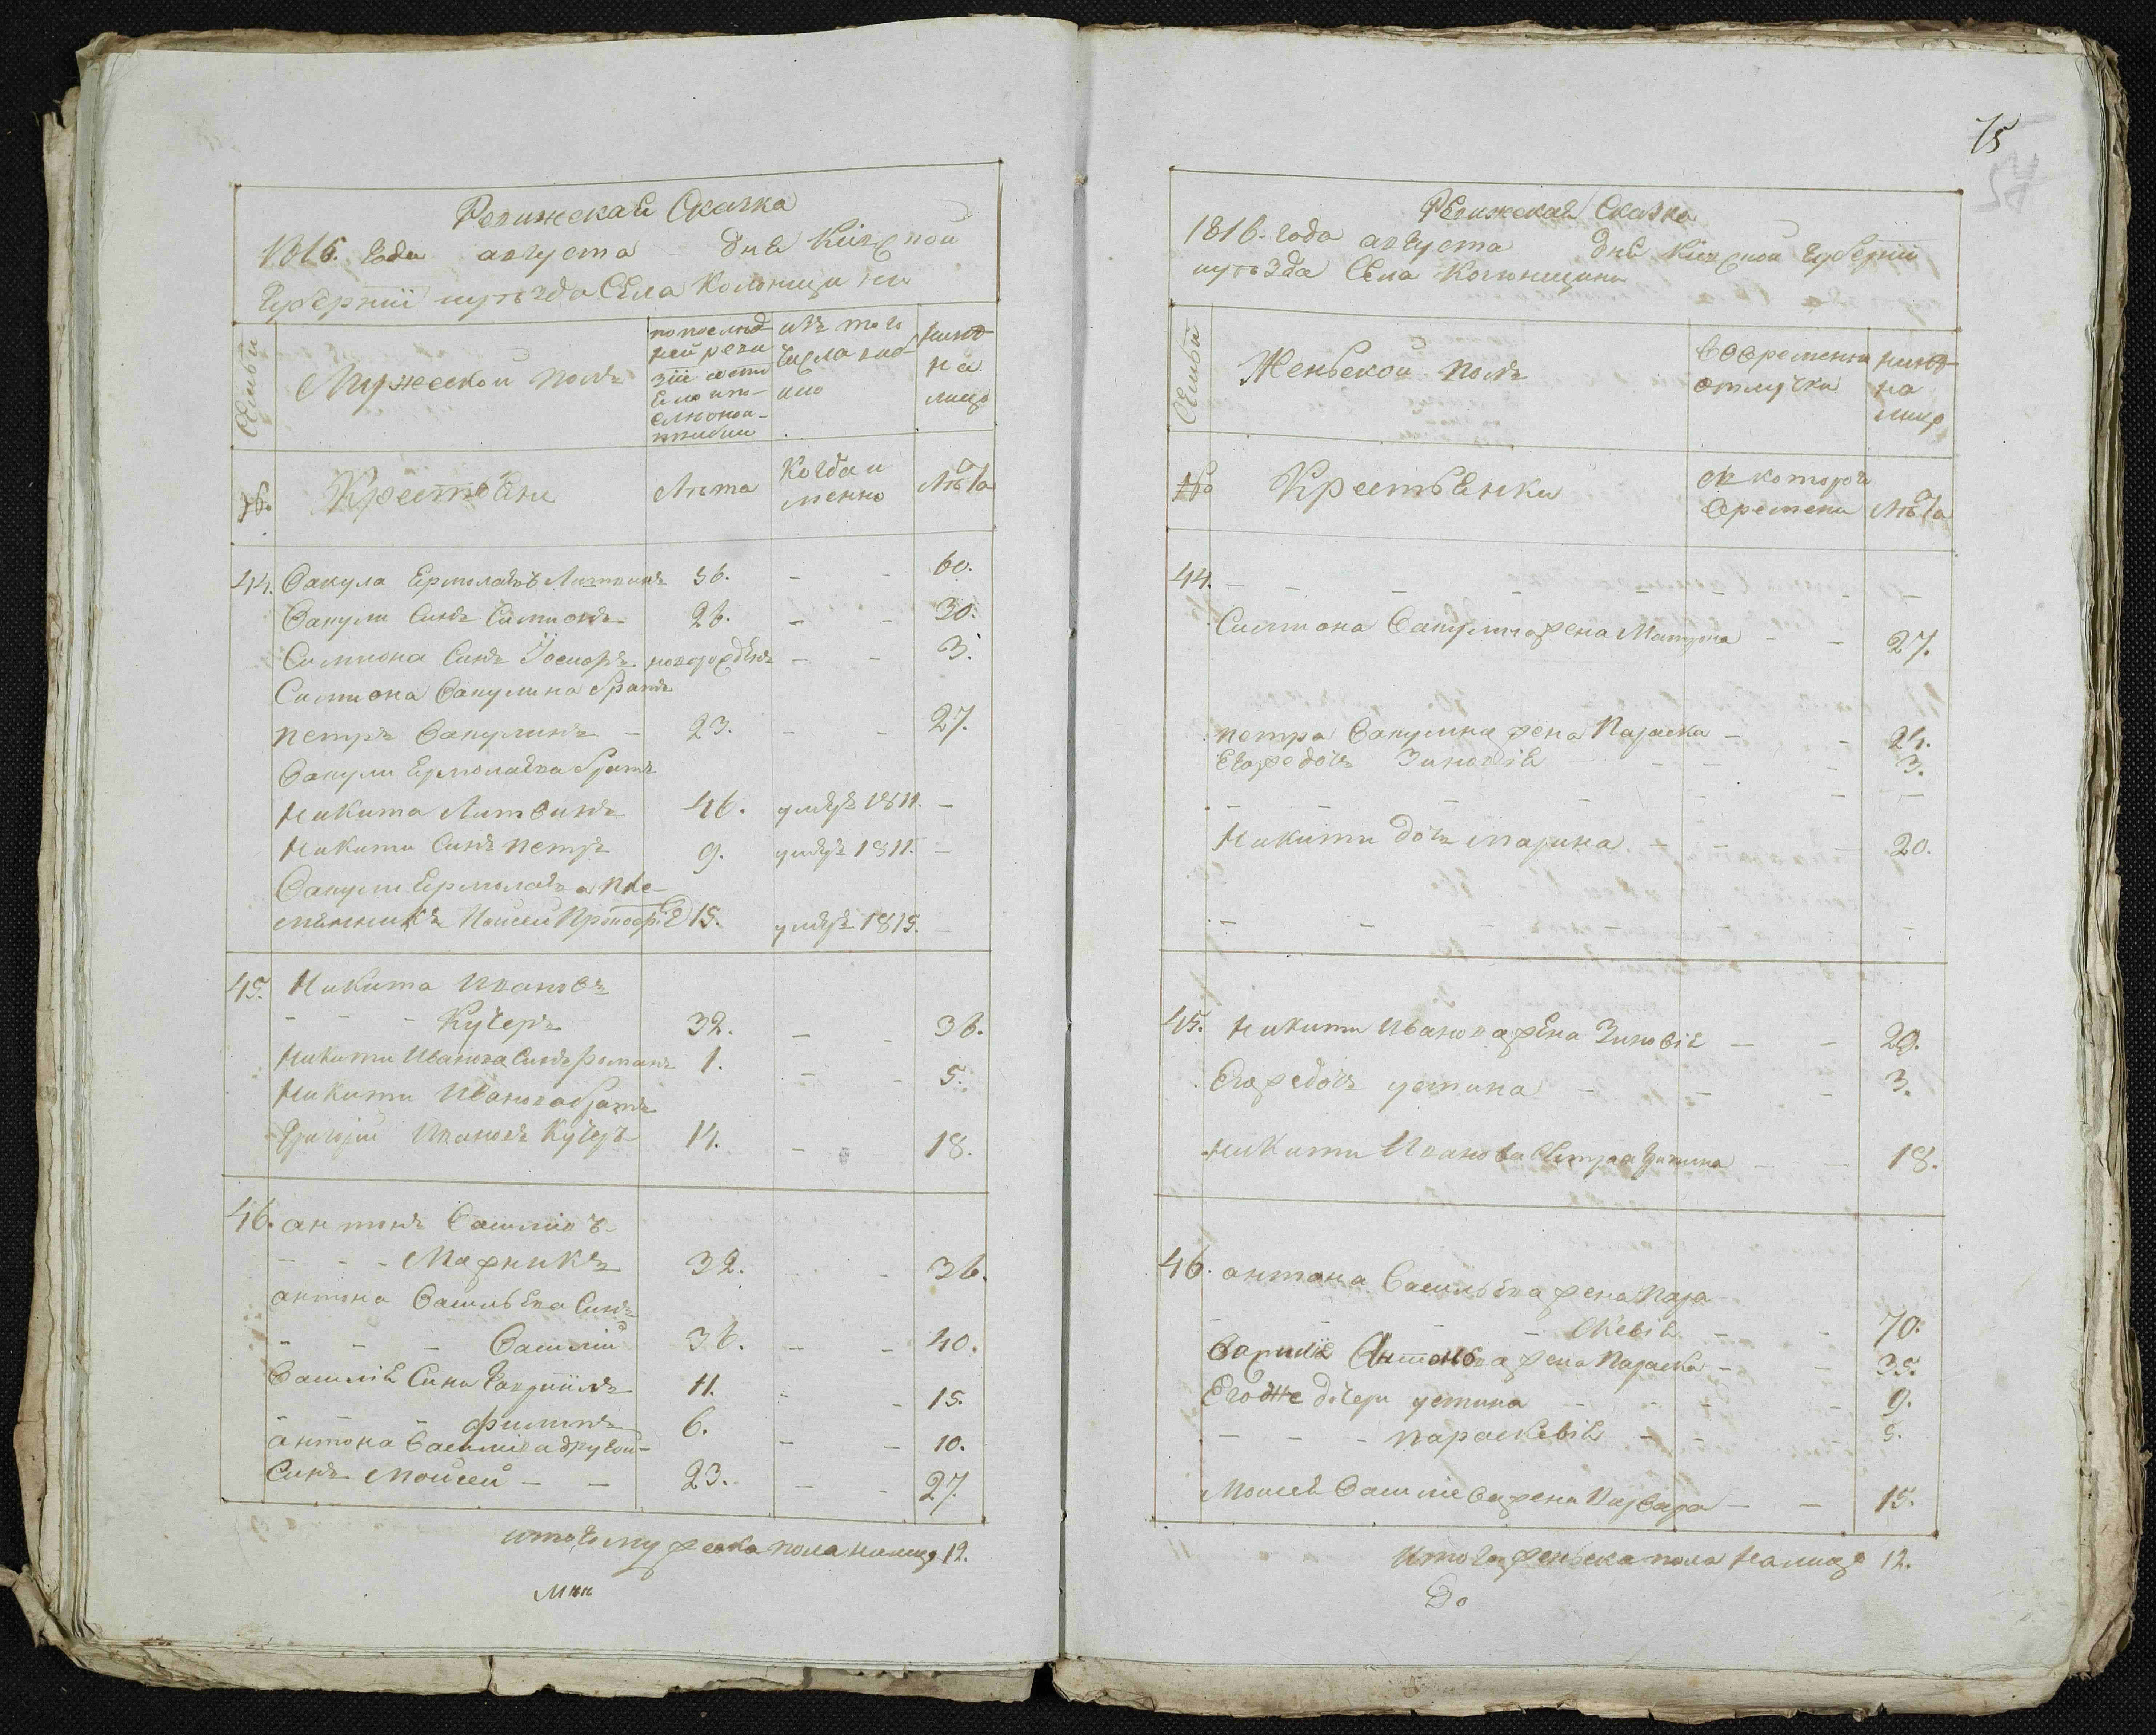 Ревижская Сказка
1816. года августа дня Кіевской
Губерніи пуезда Села Колонщины
Семьи
Мужеской полъ
попослед
ней реви
зіи состо
яло и по-
слѣ оной
прибыли
изъ того
числа выб
ыло
нынѣ
на
лицо
№.
Крестьяне
Лѣта
Когда и
менно
Лѣта
44. Вакула Ермолаевъ Литвинъ 56. - - 60.
Вакули Синъ Симионъ 26. - - 30.
Симиона Синъ Іосифъ новорожденъ - - 3.
Симиона Вакулина братъ
петръ Вакулинъ - 23. - - 27.
Вакули Ермолаева братъ
Никита Литвинъ 46. умеръ 1811. -
Никити Синъ петръ 9. умеръ 1811. -
Вакули Ермолаева пле-
мянникъ Моисей 15. умеръ 1815. -
45. Никита Ивановъ
- - - Кучеръ 32. - - 36.
Никити Иванова Синъ романъ 1. - - 5.
Никити Иванова братъ
Григорій Ивановъ Кучеръ 14. - 18.
46. антонъ Василіовъ
- - - Марникъ 32. - 36.
антона Васильева Синъ
- - - Василій 36. - - 40.
Василія Сини Гавриилъ 11. - - 15.
- - - филипъ 6. - - 10.
антона Василіева другой
Синъ Моисей - - 23. - - 27.
итого мужеска пола налицо 12.
75
Ревижская Сказка
1816. года августа дня Кіевской Губерніи
пуезда Села Колонщины
Семьи
Женьской полъ
во временной
отлучки
нынѣ
на
лицо
№
Крестьянки
съ котораго
времени
Лѣта
44. - - - - - - - -
Симиона Вакулина жена Матрона - - 27.
петра Вакулина жена Параска - - 24.
Егоже дочъ Зиновія - - - 3.
- - - - - - - -
Никити дочъ марина - - - 20.
- - - - - - - -
45. Никити Иванова жена Зиновія - - 29.
Егоже дочъ устина - - - 3.
Никити Иванова Систра - - 18.
46. антона Васильева жена Пара
- - - - скевія. - - 70.
Василія Антонова жена Параска - - 35.
Егоже дочери устина - - - 9.
- - - параскевія - - 5.
Моисея Василіева жена Варвара - - 15.
Итого женьска пола налицо 12.
До